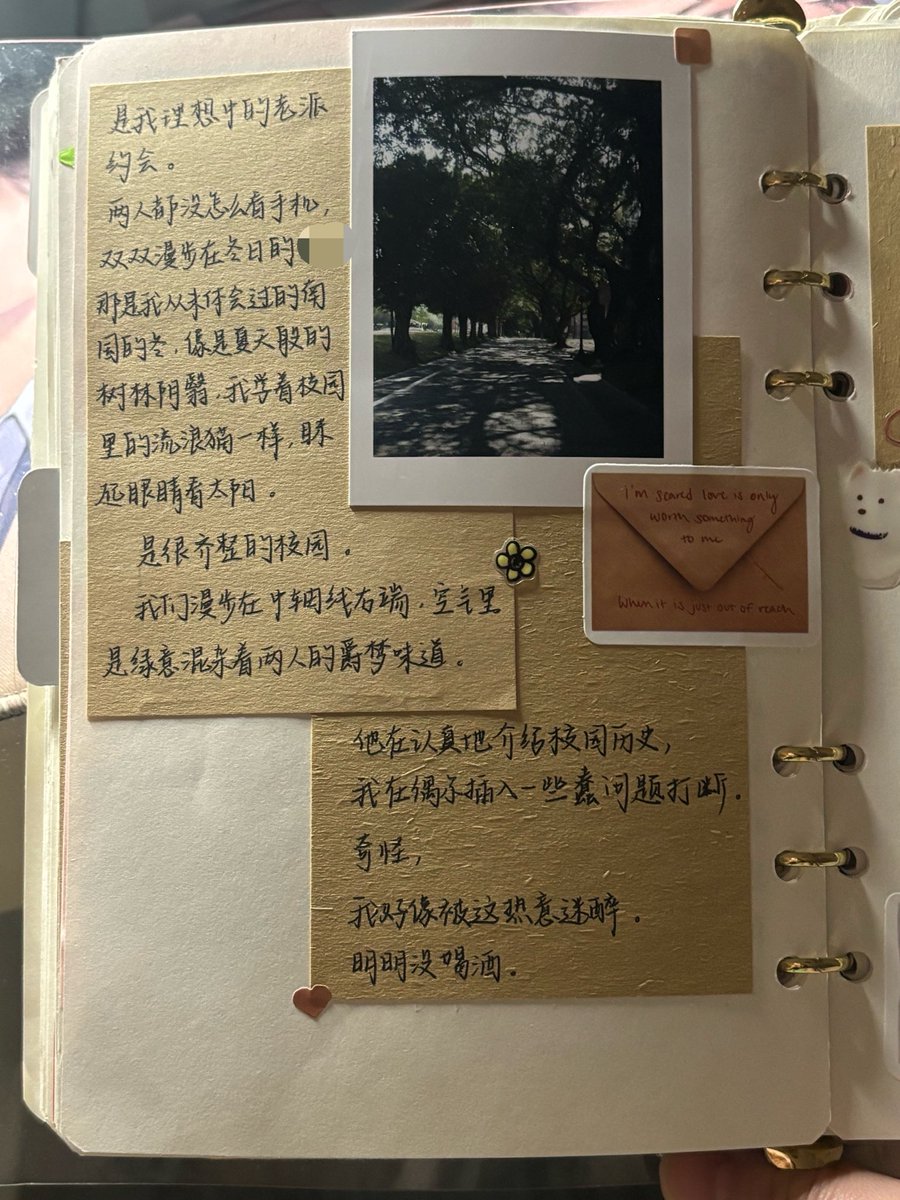 是我理想中的老派
约会。
两人都没怎么看手机,
双双漫步在冬日的
那是我从未体会过的南
国的冬,像是夏天般的
树林阴翳,我学着校园
里的流浪猫一样,眯
起眼睛看太阳。
是很齐整的校园。
我们漫步在中轴线右端,空气里
是绿意混杂着两人的爵梦味道。
I'm scared love is only
worth something
to me
When it is just out of reach
他在认真地介绍校园历史,
我在偶尔插入一些蠢问题打断。
奇怪,
我好像被这热意迷醉。
明明没喝酒。